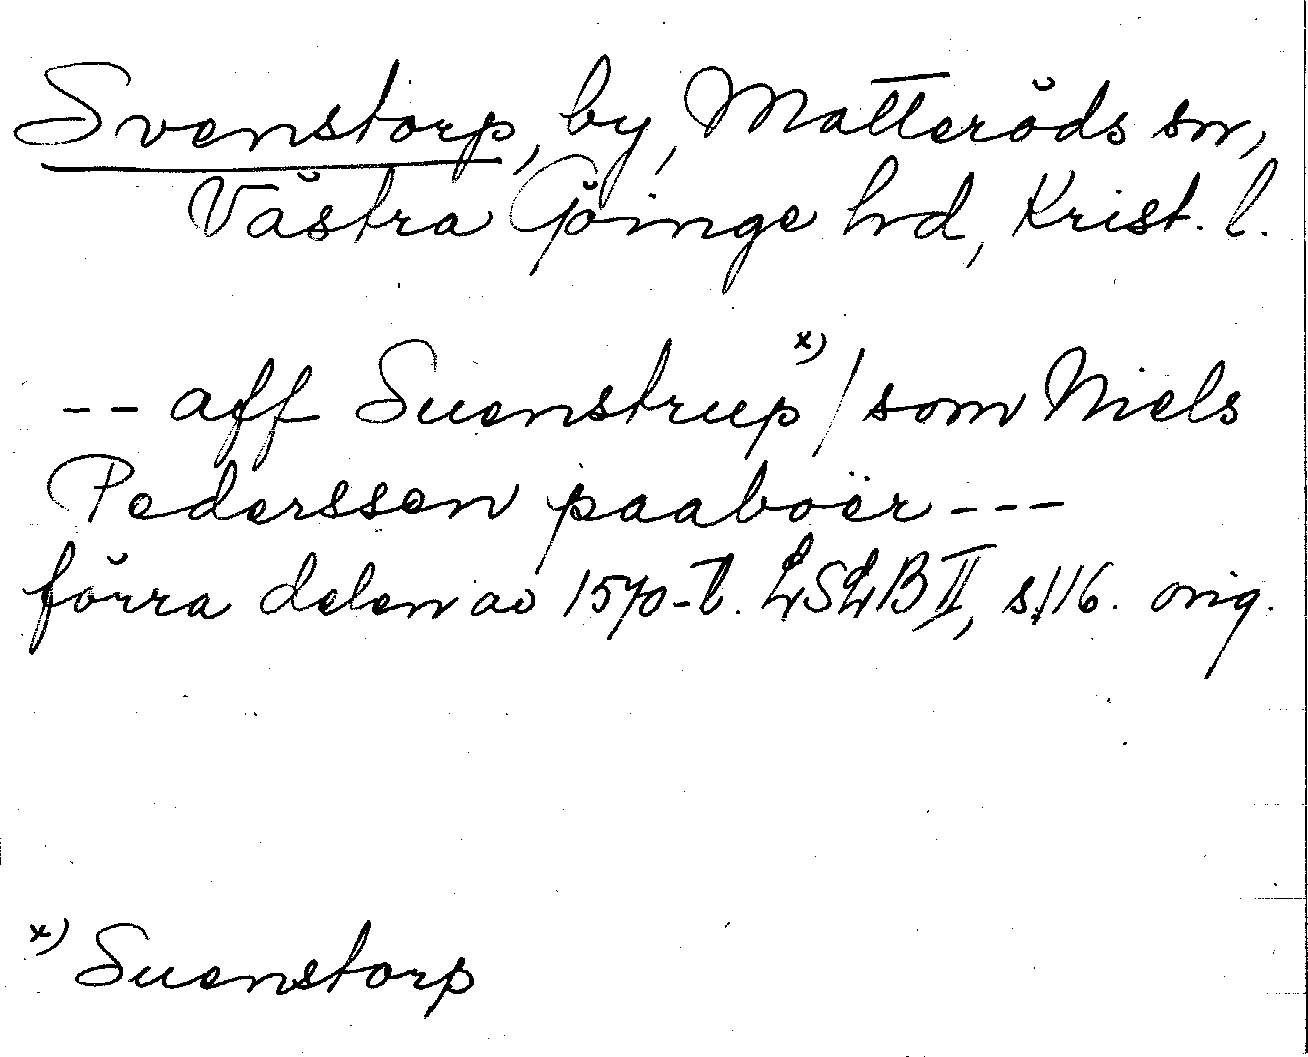 Svenstorp, by, Matteröds sn,
Västra Göinge hd, Krist. l.
-- aff Suenstrup x) / som Niels
Pederssen paaboer ---
förra delen av 1570-t. LSLB II, s. 116. orig.
x) Suenstorp